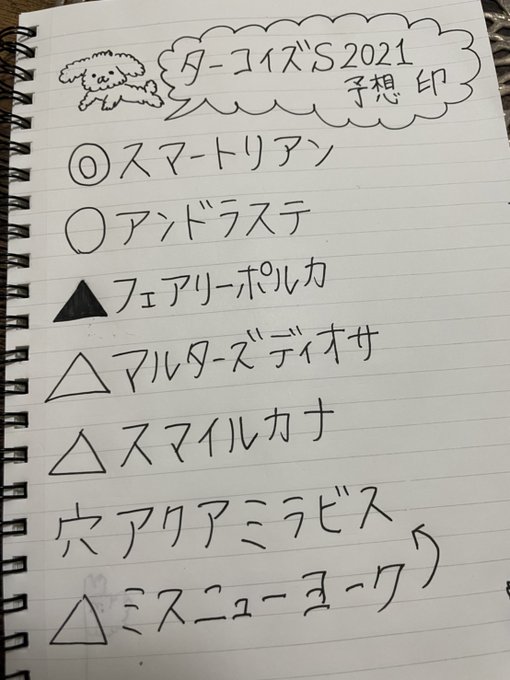 ターコイズS2021
予想 印
◎スマートリアン
○アンドラステ
▲フェアリーポルカ
△マルターズディオサ
△スマイルカナ
穴アクアミラビス
△ミスニューヨーク